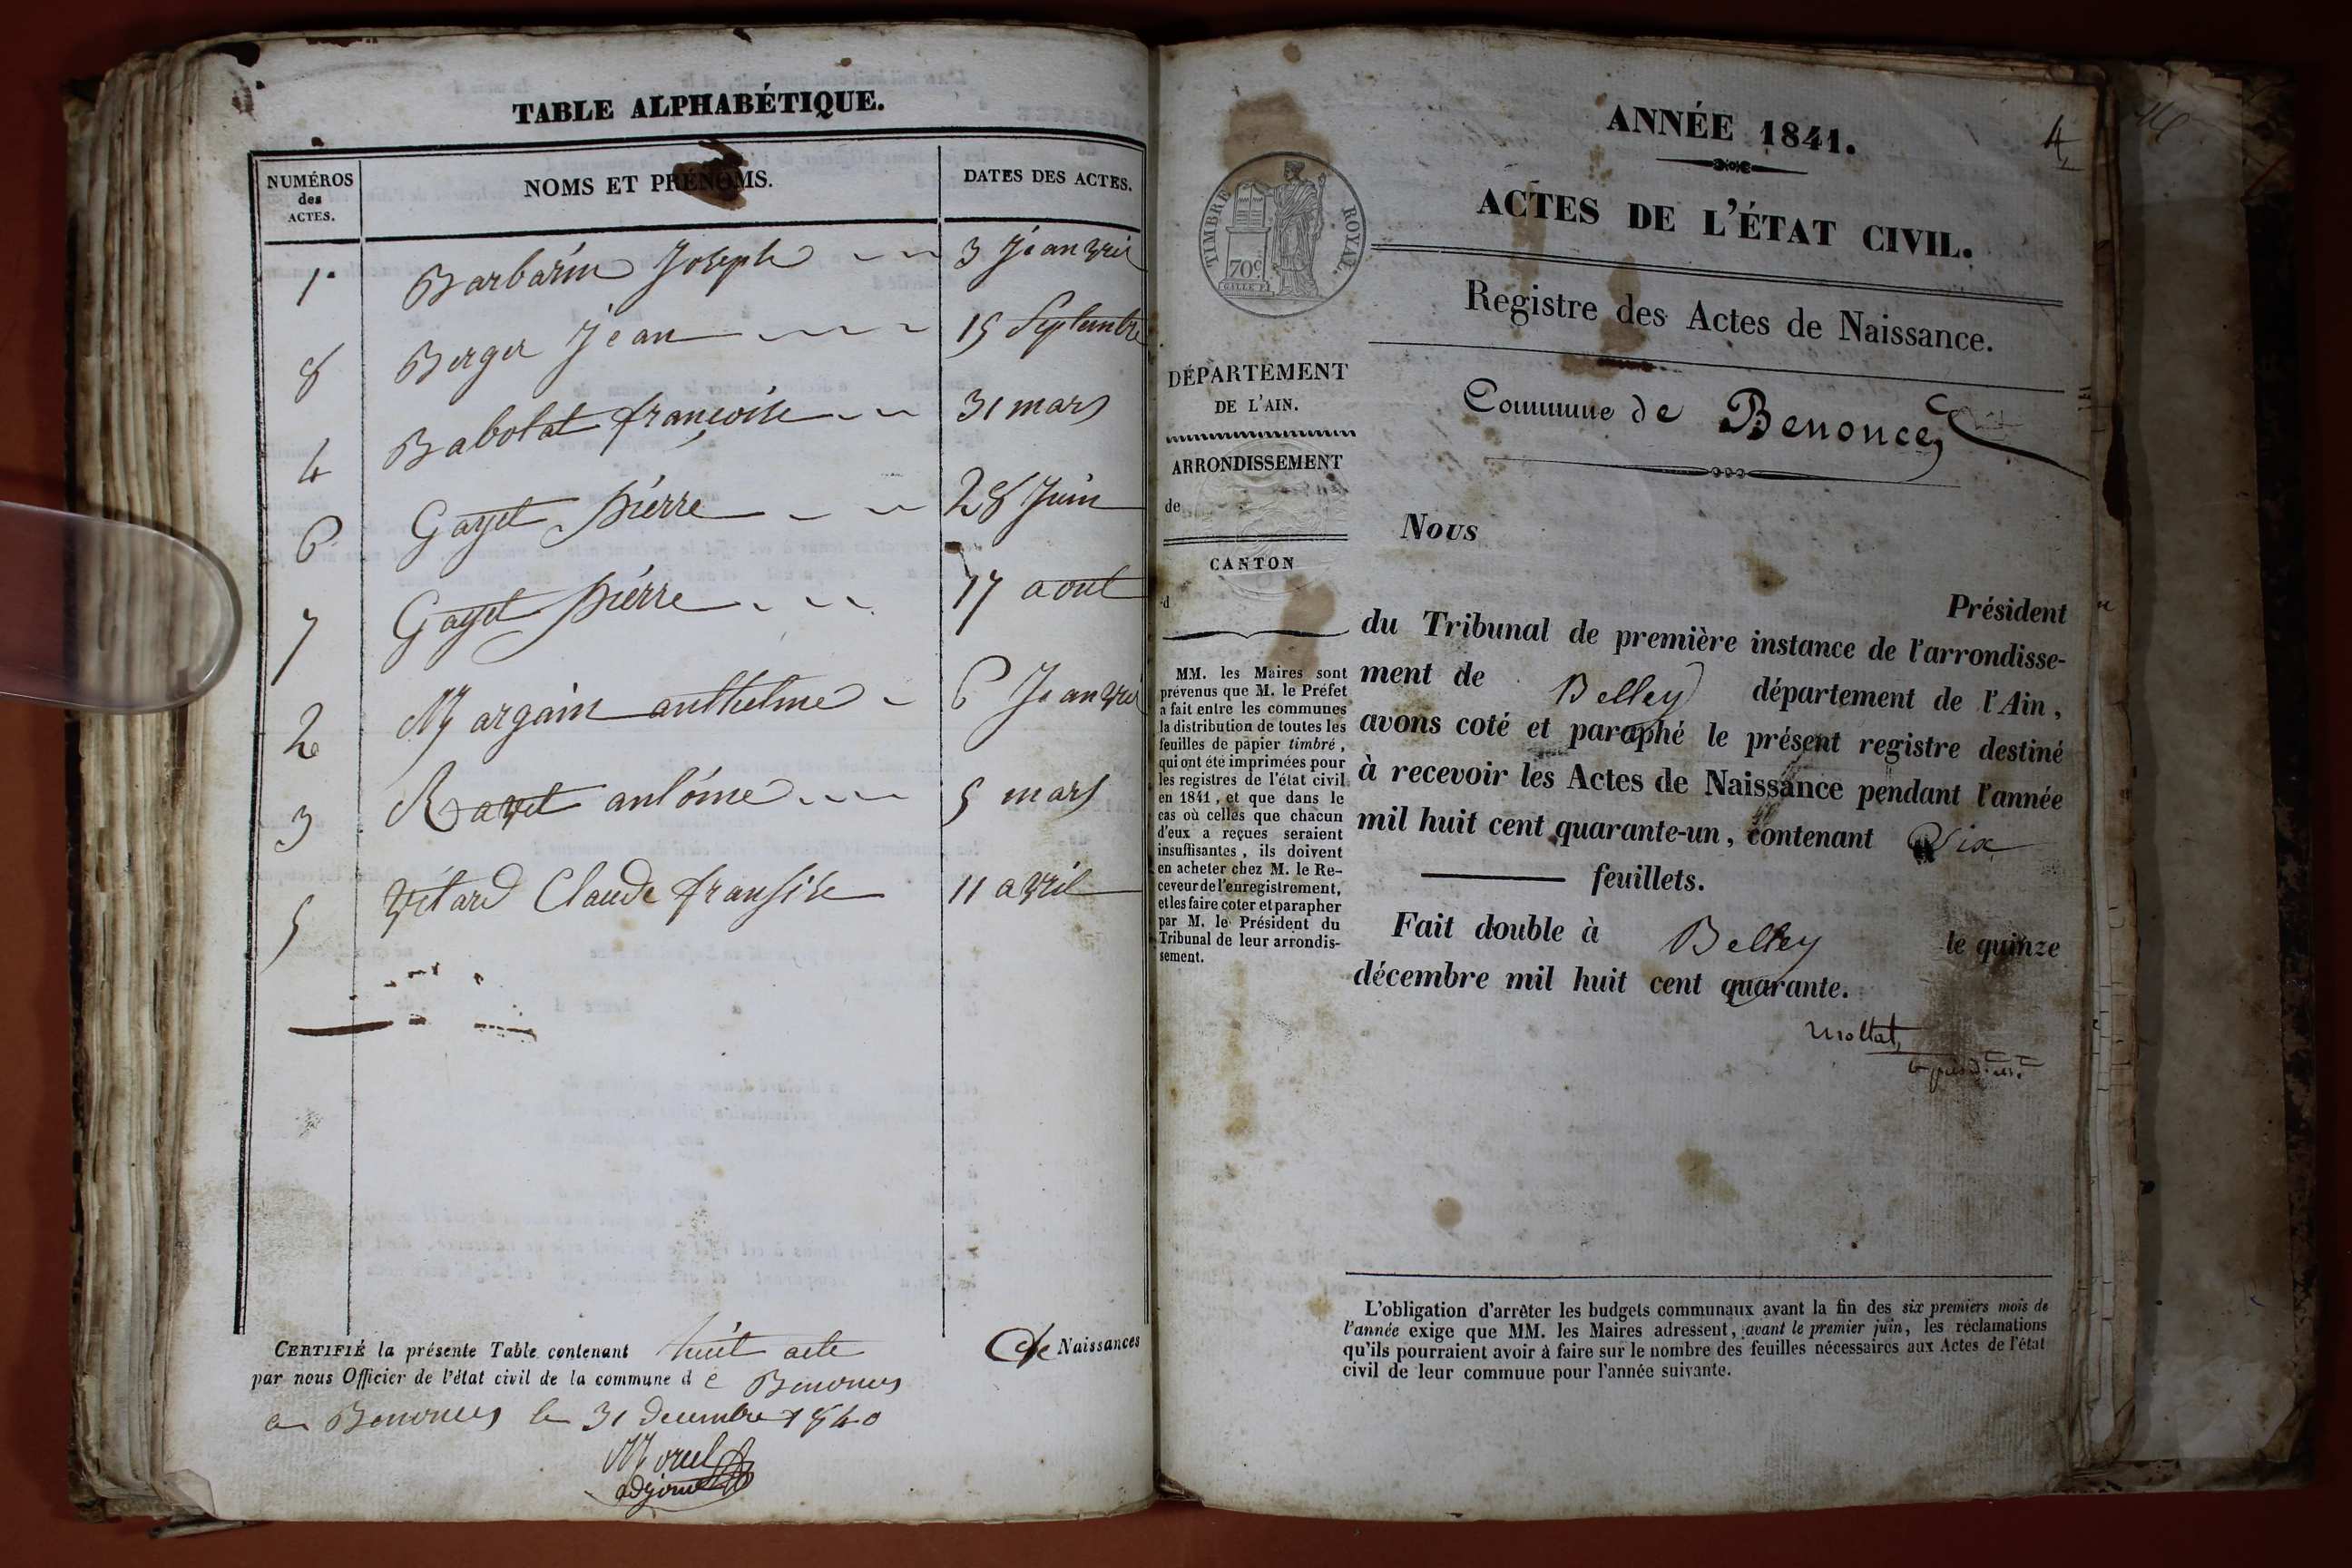 TABLE ALPHABÉTIQUE.
NUMÉROS
des
ACTES.
NOMS ET PRÉNOMS.
DATES DES ACTES.
1 Barbarin Joseph 3 Jeanvril
8 Berger Jean 15 Septembre
4 Babolat françoise 31 mars
6 Gayet pierre 28 Juin
7 Gayet pierre 17 aout
2 Margain anthelme 6 Jeanvril
3 Ravet antoine 5 mars
5 Vétard Claude fransise 11 avril
CERTIFIÉ la présente Table contenant huit acte de Naissances
par nous Officier de l'état civil de la commune d e Benonces
a Benonces le 31 decembre 1840
Morel
adjoint
4
ANNÉE 1841.
ACTES DE L'ÉTAT CIVIL.
TIMBRE ROYAL.
70c
Registre des Actes de Naissance.
Commune de Benonces
DÉPARTEMENT
DE L'AIN.
ARRONDISSEMENT
de
CANTON
d
MM. les Maires sont
prévenus que M. le Préfet
a fait entre les communes
la distribution de toutes les
feuilles de papier timbré,
qui ont été imprimées pour
les registres de l'état civil
en 1841, et que dans le
cas où celles que chacun
d'eux a reçues seraient
insuffisantes, ils doivent
en acheter chez M. le Re-
ceveur de l'enregistrement,
et les faire coter et parapher
par M. le Président du
Tribunal de leur arrondis-
sement.
Nous
Président
du Tribunal de première instance de l'arrondisse-
ment de Belley département de l'Ain,
avons coté et paraphé le présent registre destiné
à recevoir les Actes de Naissance pendant l'année
mil huit cent quarante-un, contenant Six
feuillets.
Fait double à Belley le quinze
décembre mil huit cent quarante.
Mollat
L'obligation d'arrêter les budgets communaux avant la fin des six premiers mois de
l'année exige que MM. les Maires adressent, avant le premier juin, les réclamations
qu'ils pourraient avoir à faire sur le nombre des feuilles nécessaires aux Actes de l'état
civil de leur commune pour l'année suivante.